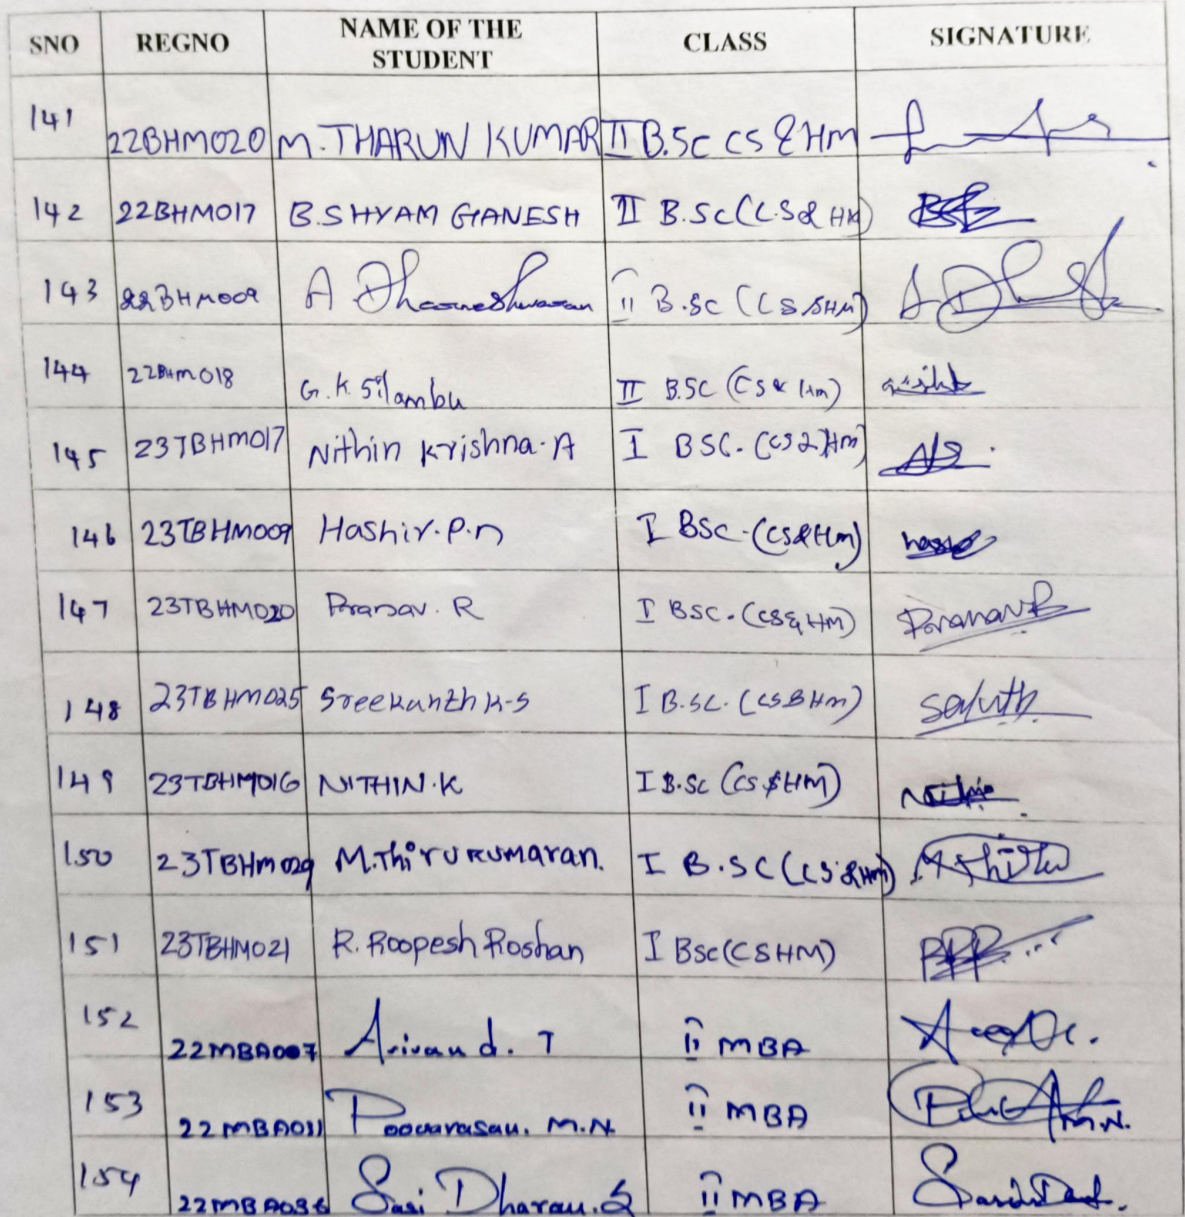 SNO REGNO NAME OF THE STUDENT CLASS SIGNATURE
141 22BHM020 M. THARUN KUMAR II B.SC CS & HM
142 22BHM017 B. SHYAM GANESH II B.SC (C.S & HM)
143 22BHM009 A Dharneshwaran II B.SC (CS &HM)
144 22BHM018 G.K. Silambu II B.SC (CS & HM)
145 23TBHM017 Nithin Krishna. A I BSC. (CS & HM)
146 23TBHM009 Hashir. P. n I BSC. (CS & Hm)
147 23TBHM020 Pranav. R I BSC. (CS & HM) Pranav R
148 23TBHM025 Sreekanth K-S I B.SC. (CS & Hm)
149 23TBHM016 NITHIN. K I B.SC (CS & HM)
150 23TBHM029 M. Thirukumaran. I B.SC (CS & Hm)
151 23TBHM021 R. Roopesh Roshan I BSC (CSHM)
152 22MBA007 Arivand. T II MBA
153 22MBA011 Poovarasan. M.N. II MBA M.N.
154 22MBA036 Sasi Dharan. S II MBA